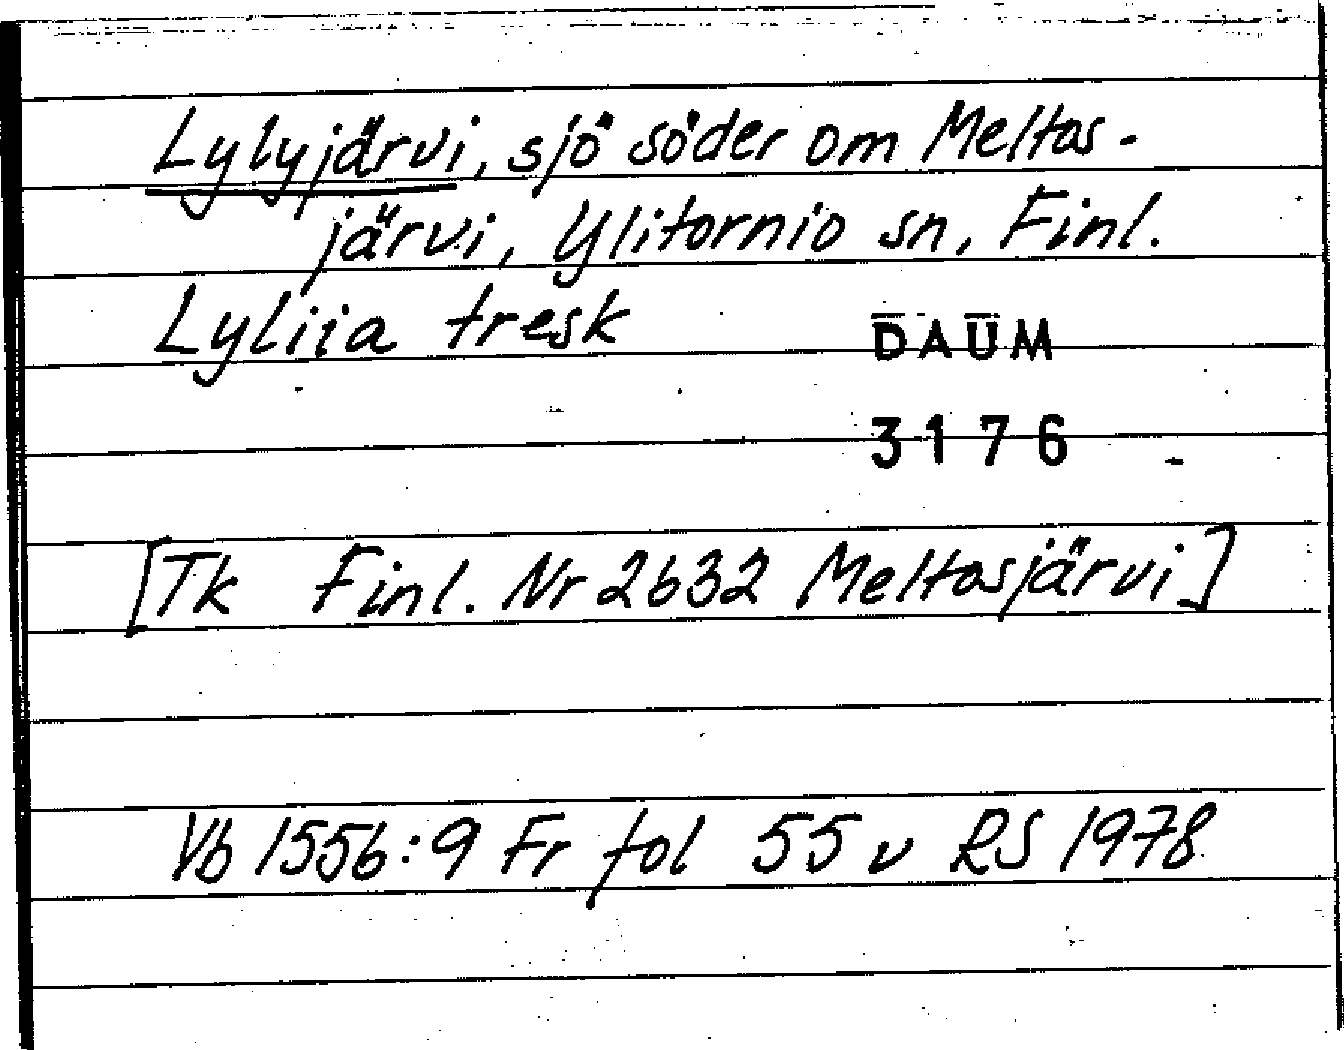 Lylyjärvi, sjö söder om Meltos-
järvi, Ylitornio sn, Finl.
Lyliia tresk
DAUM
3176
[Tk Finl. Nr 2632 Meltosjärvi]
Vb 1556:9 Fr fol 55 v RS 1978